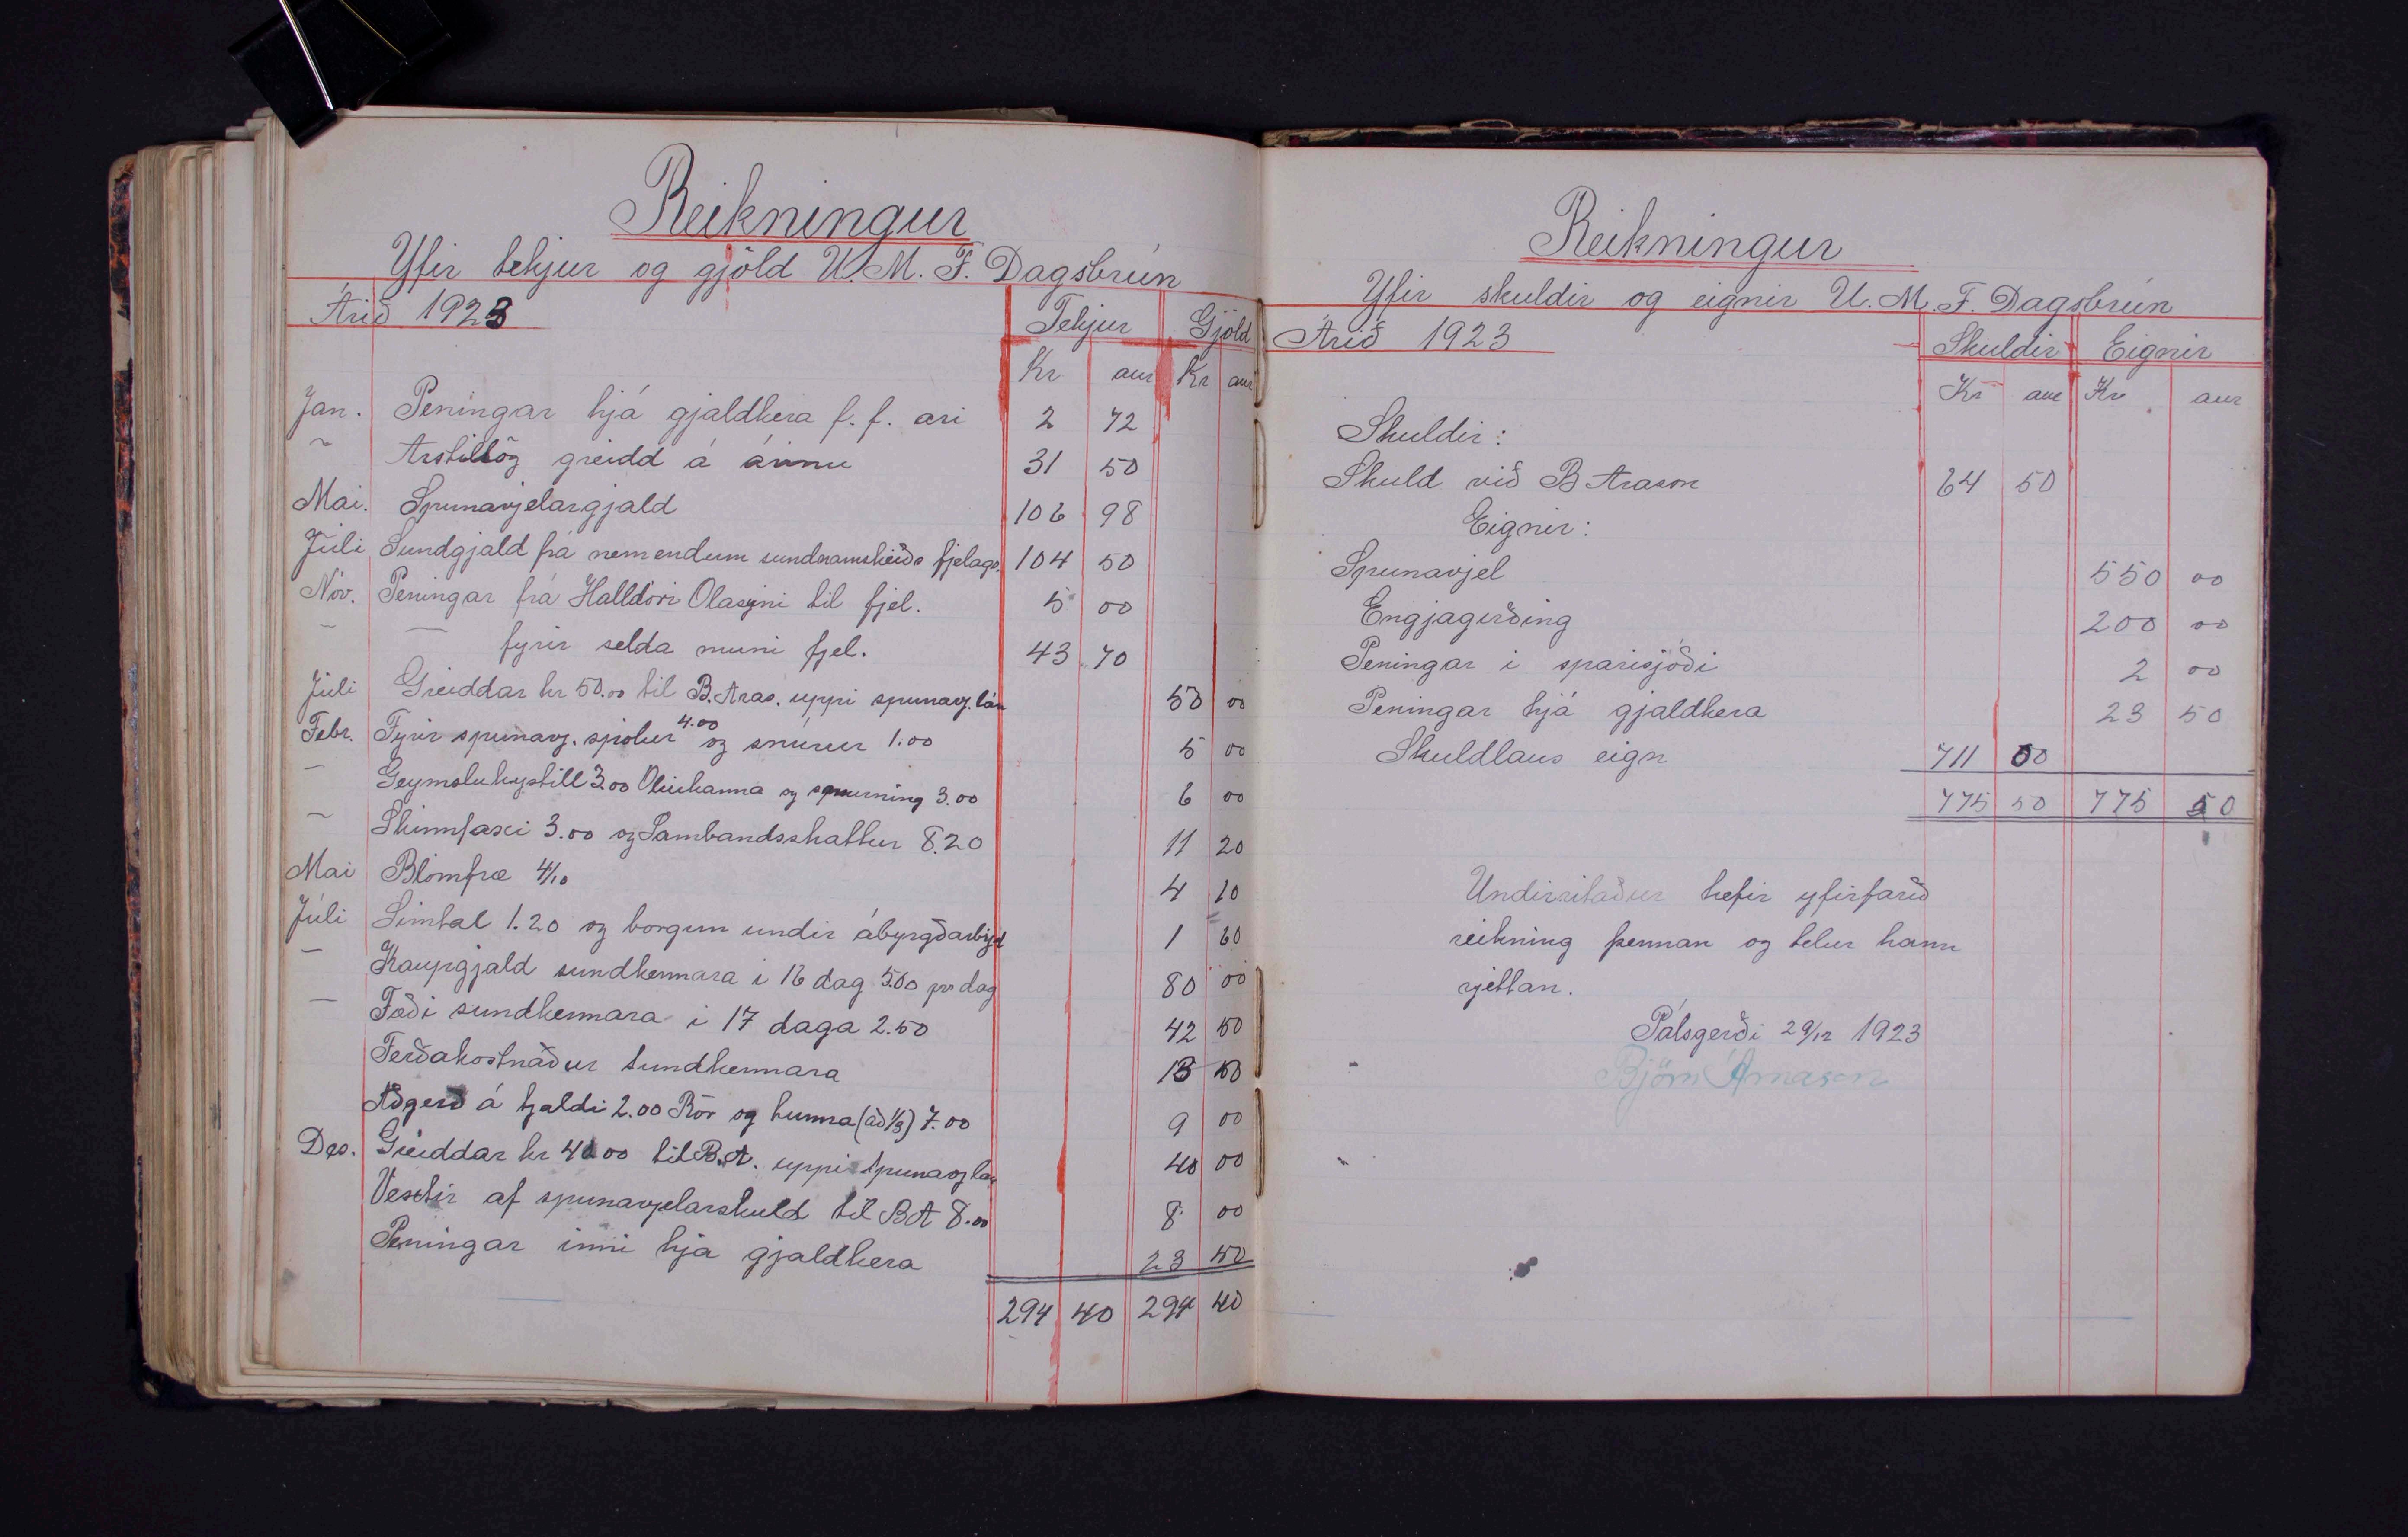 Reikningur
Yfir tekjur og gjöld U.M.F. Dagsbrún
Árið 1923
Tekjur Gjöld
Kr aur Kr aur
Jan. Peningar hjá gjaldkera f. f. ari 2 72
~ Arstillög greidd á árinu 31 50
Mai. Spunavjelargjald 106 98
Júli Sundgjald frá nemendum sundnamskeiðs fjelags. 104 50
Nóv. Peningar frá Halldóri Olasyni til fjel. 5 00
~ — fyrir selda muni fjel. 43 70
Júli Greiddar kr 50.00 til B. Aras. uppi spunavj. lán 50 00
Febr. Fyrir spunavj. spólur 4.00 og snúrur 1.00 5 00
— Geymslukystill 3.00 Oliukanna og smurning 3.00 6 00
~ Skinnfaxi 3.00 og Sambandsskattur 8.20 11 20
Mai Blómfræ 4/10 4 10
Júli Simtal 1.20 og borgun undir ábyrgðarbrjef 1 60
— Kaupgjald sundkennara i 16 dag 5.00 pr dag 80 00
— Fæði sundkennara i 17 daga 2.50 42 50
Ferðakostnaður sundkennara 13 50
Aðgerð á tjaldi 2.00 Rör og tunna (að 1/3) 7.00 9 00
Des. Greiddar kr 40 00 til B.A. uppi spunavj lán 40 00
Vextir af spunavjelarskuld til BA 8.00 8 00
Peningar inni hjá gjaldkera 23 50
294 40 294 40
Reikningur
Yfir skuldir og eignir U.M.F. Dagsbrún
Árið 1923
Skuldir Eignir
Kr aur Kr aur
Skuldir:
Skuld við B Arason 64 50
Eignir:
Spunavjel 550 00
Engjagirðing 200 00
Peningar i sparisjóði 2 00
Peningar hjá gjaldkera 23 50
Skuldlaus eign 711 00
775 50 775 50
Undirritaður hefir yfirfarið
reikning þennan og telur hann
rjettan.
Pálsgerði 29/12 1923
Björn Árnason